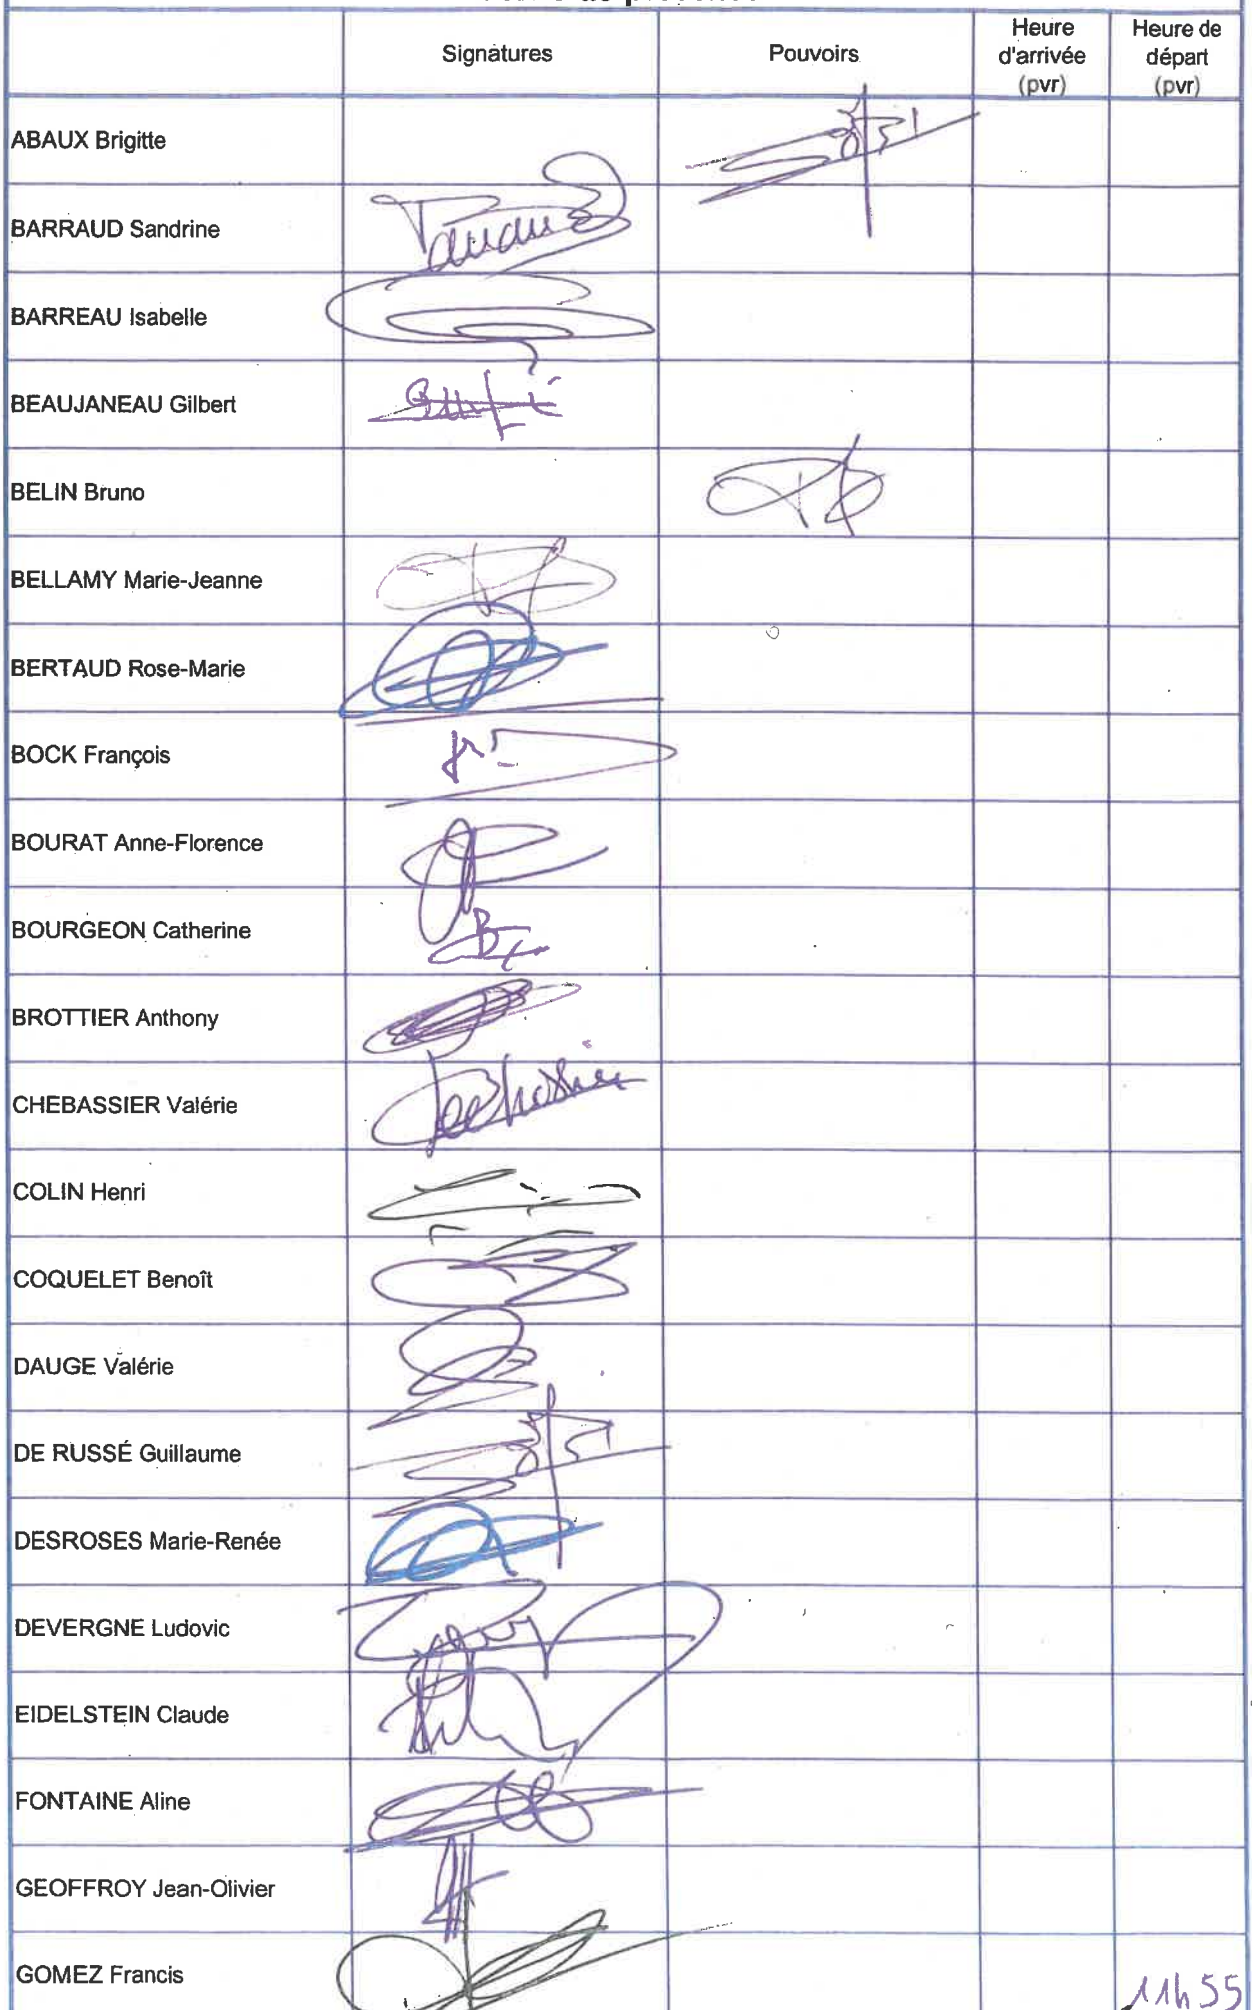 Signatures
Pouvoirs
Heure
d'arrivée
(pvr)
Heure de
départ
(pvr)
ABAUX Brigitte
BARRAUD Sandrine
BARREAU Isabelle
BEAUJANEAU Gilbert
BELIN Bruno
BELLAMY Marie-Jeanne
BERTAUD Rose-Marie
BOCK François
BOURAT Anne-Florence
BOURGEON Catherine
BROTTIER Anthony
CHEBASSIER Valérie
COLIN Henri
COQUELET Benoît
DAUGE Valérie
DE RUSSÉ Guillaume
DESROSES Marie-Renée
DEVERGNE Ludovic
EIDELSTEIN Claude
FONTAINE Aline
GEOFFROY Jean-Olivier
GOMEZ Francis
11h55